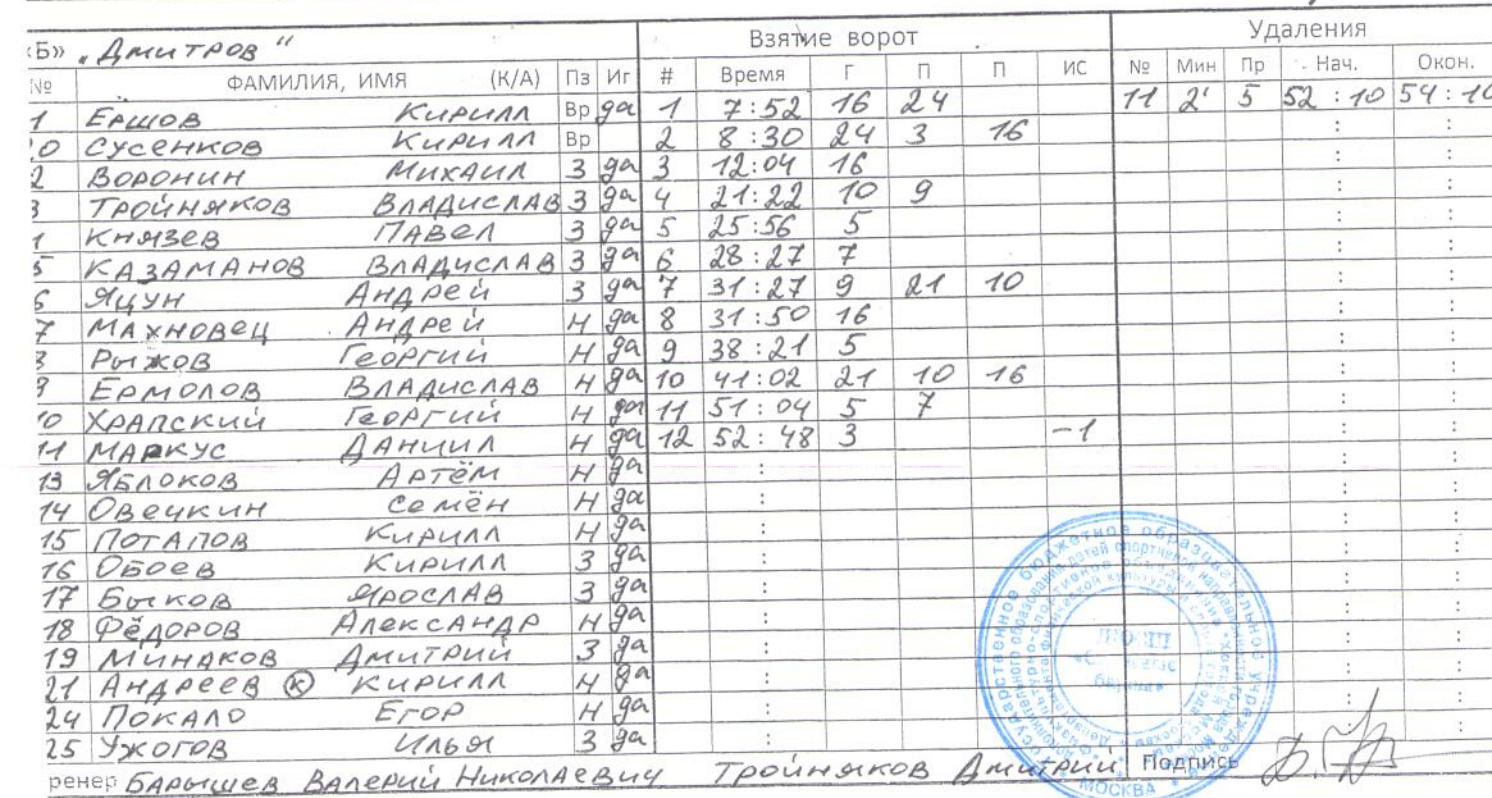 «Б» „Дмитров" Взятие ворот Удаления
№ ФАМИЛИЯ, ИМЯ (К/А) Пз Иг # Время Г П П ИС № Мин Пр Нач. Окон.
1 Ершов Кирилл Вр да 1 7:52 16 24 11 2' 5 52:10 54:10
0 Сусенков Кирилл Вр 2 8:30 24 3 16 : :
2 Воронин Михаил З да 3 12:04 16 : :
3 Тройняков Владислав З да 4 21:22 10 9 : :
Князев Павел З да 5 25:56 5 : :
5 Казаманов Владислав З да 6 28:27 7 : :
6 Яцун Андрей З да 7 31:27 9 21 10 : :
7 Махновец Андрей Н да 8 31:50 16 : :
Рыжов Георгий Н да 9 38:21 5 : :
9 Ермолов Владислав Н да 10 41:02 21 10 16 : :
10 Храпский Георгий Н да 11 51:04 5 7 : :
11 Маркус Даниил Н да 12 52:48 3 -1 : :
13 Яблоков Артём Н да : : :
14 Овечкин Семён Н да : : :
15 Потапов Кирилл Н да : : :
16 Обоев Кирилл З да : : :
17 Быков Ярослав З да : : :
18 Фёдоров Александр Н да : : :
19 Минаков Дмитрий З да : : :
21 Андреев (К) Кирилл Н да : : :
24 Покало Егор Н да : : :
25 Ужогов Илья З да : : :
ренер Барышев Валерий Николаевич Тройняков Дмитрий Подпись
МОСКВА